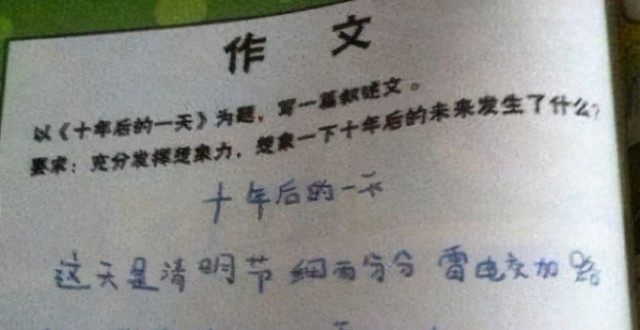 作 文
以《十年后的一天》为题，写一篇叙述文。
要求：充分发挥想象力，想象一下十年后的未来发生了什么？
十年后的一天
这天是清明节 细雨分分 雷电交加 路